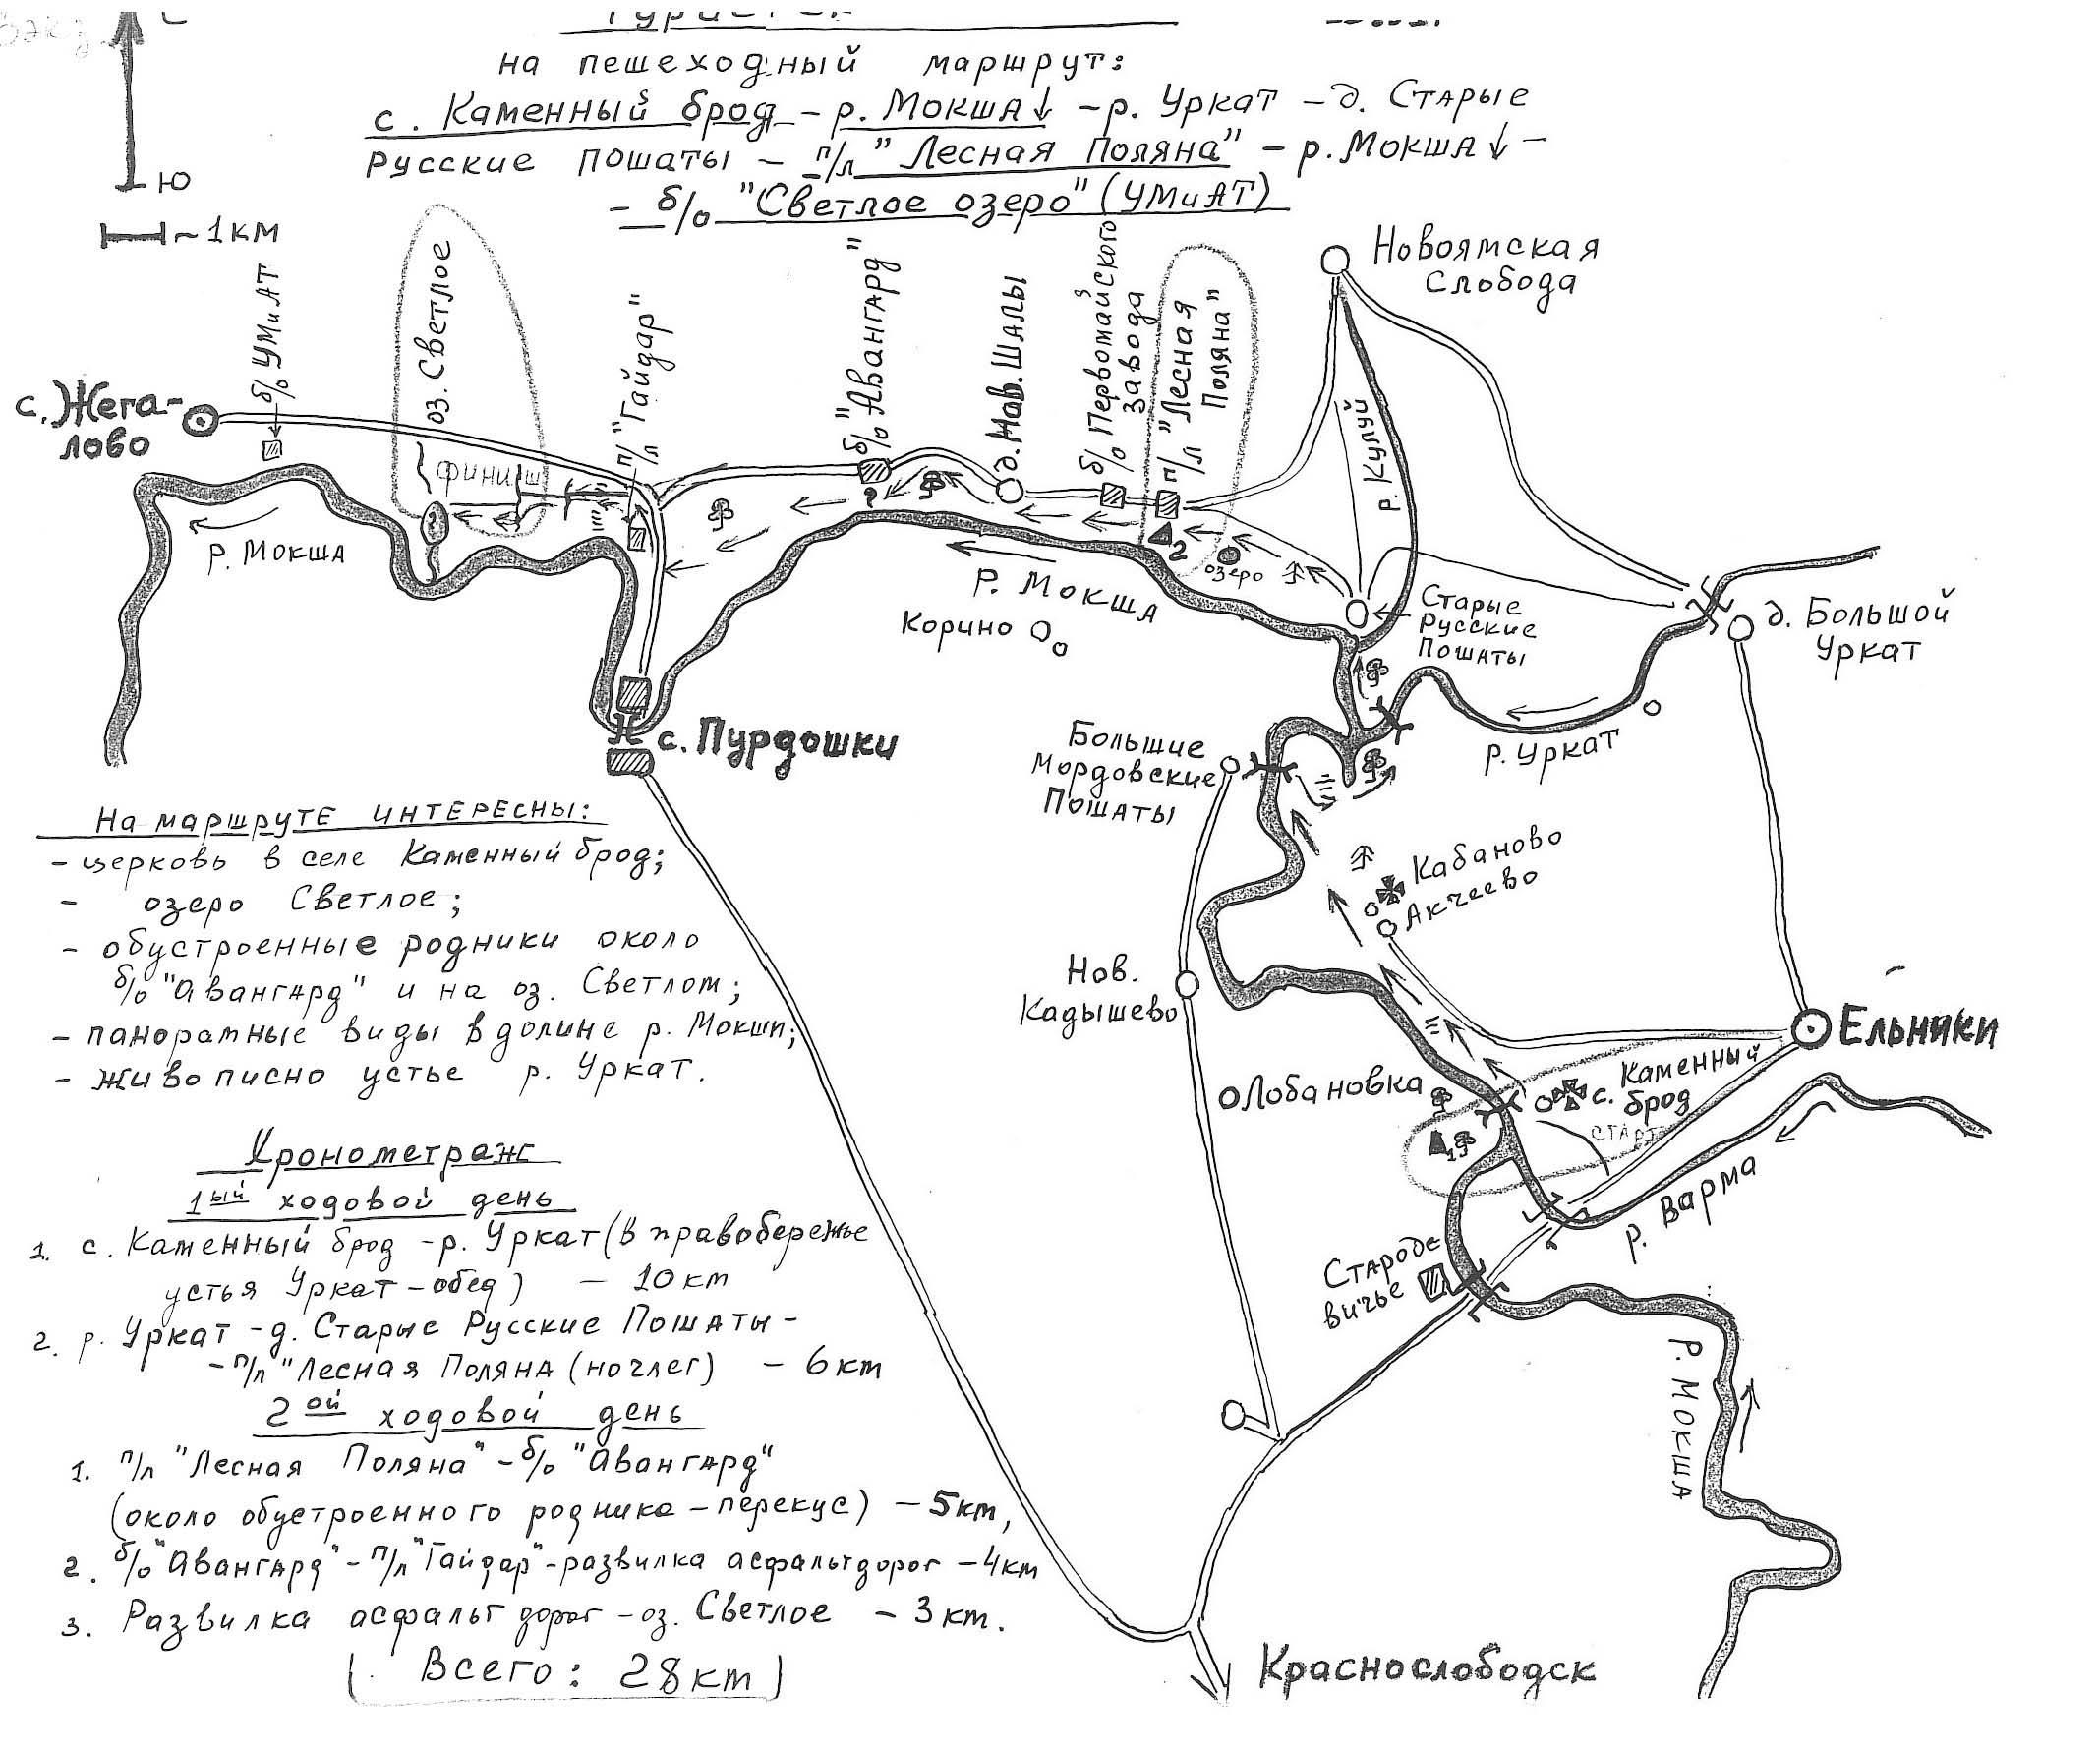 на пешеходный маршрут:
с. Каменный брод - р. Мокша↓ - р. Уркат - д. Старые
Русские Пошаты - п/л "Лесная Поляна" - р. Мокша↓ -
- б/о "Светлое озеро" (УМиАТ)
Ю
~ 1 км
с. Жега-
лово
б/о УМиАТ
оз. Светлое
финиш
п/л "Гайдар"
б/о "Авангард"
д. Нов. Шалы
б/о Первомайского
завода
п/л "Лесная
Поляна"
Новоямская
Слобода
р. Кулуй
р. Мокша
р. Мокша
2
озеро
Корино
Старые
Русские
Пошаты
д. Большой
Уркат
р. Уркат
с. Пурдошки
Большие
Мордовские
Пошаты
Кабаново
Акчеево
Нов.
Кадышево
Ельники
Лобановка
с. Каменный
брод
старт
1
р. Варма
Староде
вичье
р. Мокша
Краснослободск
На маршруте интересны:
- церковь в селе Каменный брод;
- озеро Светлое;
- обустроенные родники около
б/о "Авангард" и на оз. Светлом;
- панорамные виды в долине р. Мокши;
- живописно устье р. Уркат.
Хронометраж
1ый ходовой день
1. с. Каменный брод - р. Уркат (в правобережье
устья Уркат - обед) - 10 км
2. р. Уркат - д. Старые Русские Пошаты -
- п/л "Лесная Поляна (ночлег) - 6 км
2ой ходовой день
1. п/л "Лесная Поляна" - б/о "Авангард"
(около обустроенного родника - перекус) - 5 км,
2. б/о "Авангард" - п/л "Гайдар" - развилка асфальт дорог - 4 км
3. Развилка асфальт дорог - оз. Светлое - 3 км.
Всего: 28 км